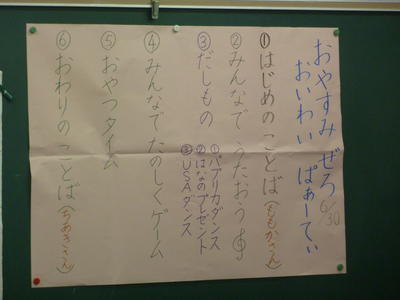 おやすみ ぜろ
おいわい ぱぁーてぃ
6/30
①はじめのことば(ももかさん)
②みんなで うたおう
③だしもの
①パプリカダンス
②はなのプレゼント
③USAダンス
④みんなでたのしくゲーム
⑤おやつタイム
⑥おわりのことば(ちあきさん)